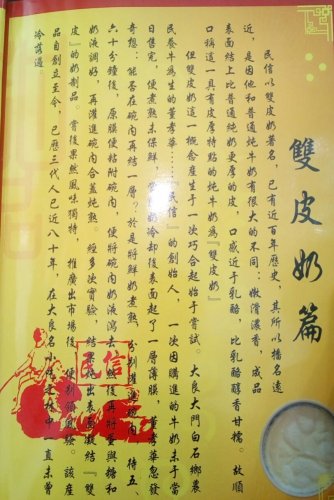 雙皮奶篇
民信以雙皮奶著名，已有近百年歷史，其所以播名遠
近，是因他和普通炖牛奶有很大的不同：嫩滑濃香，成品
表面結上比普通炖奶更厚的皮，口感近于乳酪，比乳酪醇香甘糯。故順
口稱道一具有皮厚特點的炖牛奶為『雙皮奶』
但雙皮奶這一概念産生于一次巧合起始于嘗試。大良大門白石鄉裏
民養牛為生的董孝華……『民信』的創始人，一次因購進的牛奶未于當
日售完，便煮熟未保鮮
奶冷却後表面起了一層薄膜，董孝華忽發
奇想：能否在碗内再結一層？於是將鮮奶煮熟，分别灌進碗内，待五、
六十分鐘後，原膜便粘附碗内，便將碗内奶液瀉去
然後再將蛋與糖和
奶液調好，再灌進碗内合蓋炖熟。經多次實驗，結果
他出表面凝結『雙
皮』的奶制品。嘗後果然風味獨特，推廣出市場後，便
該産
品自創立至今，已歷三代人已近八十年，在大良名小
中一直未嘗
冷落過
民信